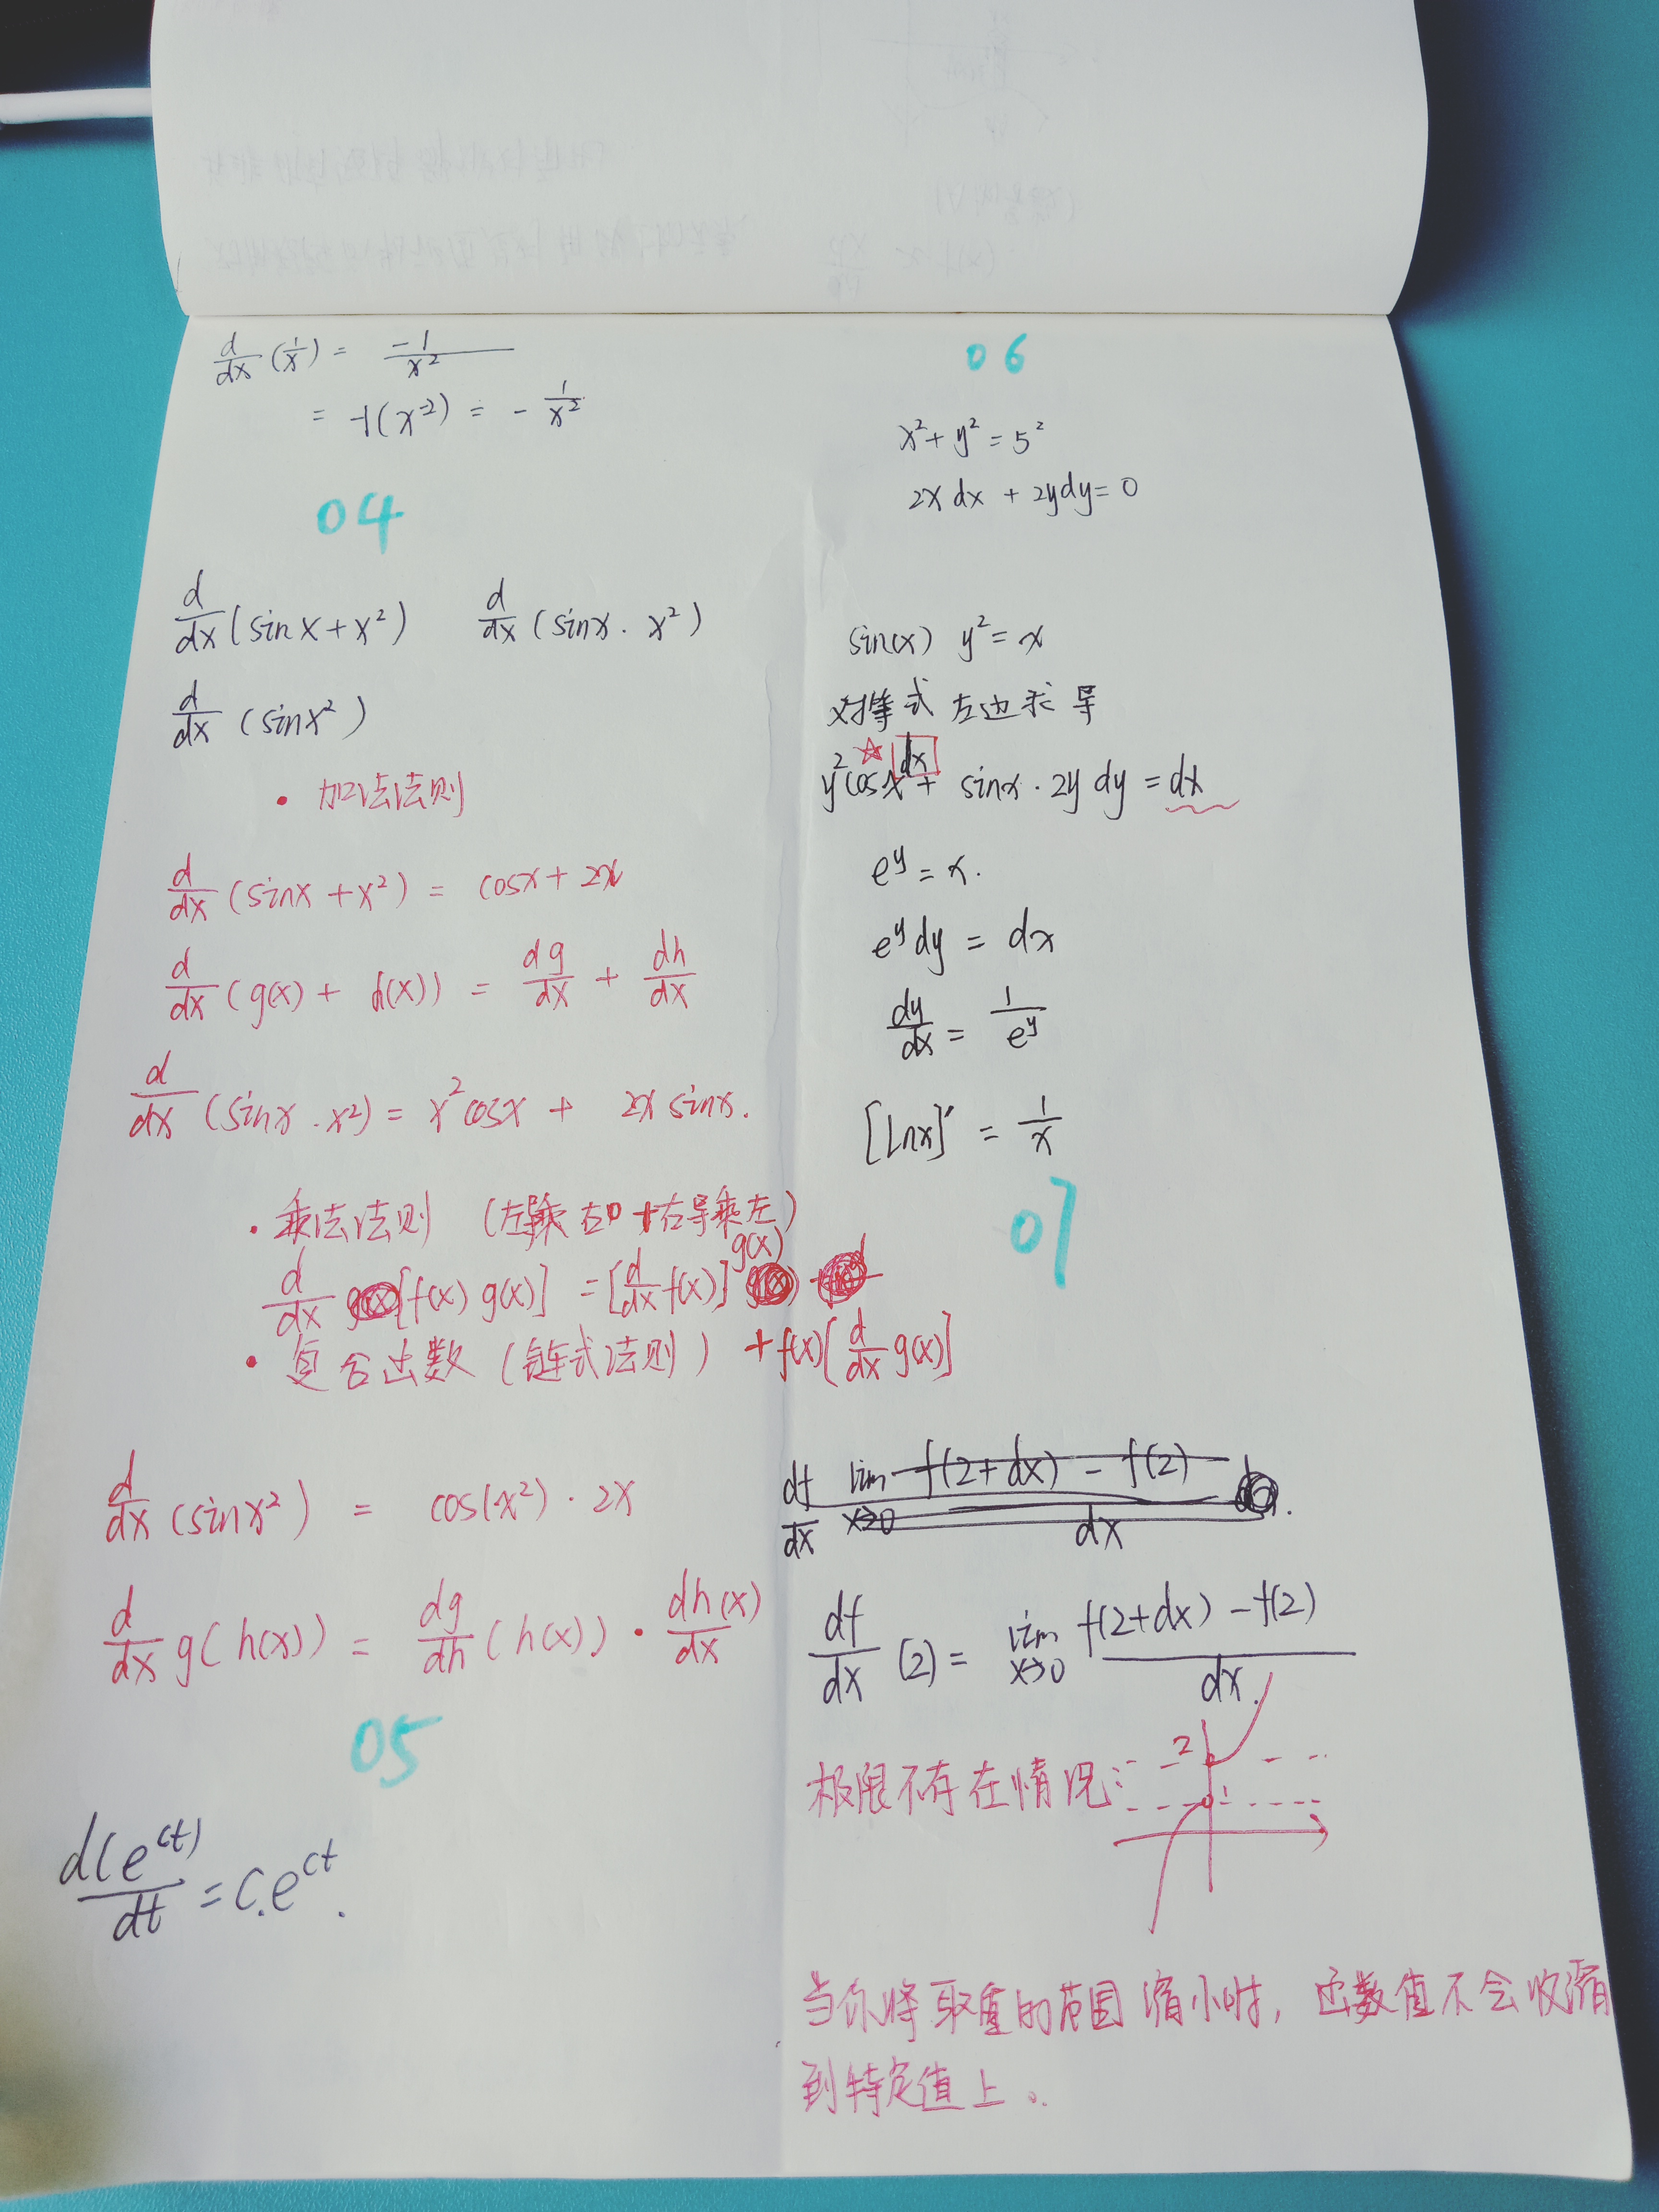 d/dx (1/x) = -1/x²
= -1(x⁻²) = - 1/x²
04
d/dx (sinx + x²) d/dx (sinx · x²)
d/dx (sinx²)
· 加法法则
d/dx (sinx + x²) = cosx + 2x
d/dx (g(x) + h(x)) = dg/dx + dh/dx
d/dx (sinx · x²) = x²cosx + 2x sinx.
· 乘法法则 (左导乘右 + 右导乘左)
d/dx [f(x) g(x)] = [d/dx f(x)] g(x)
· 复合函数 (链式法则) + f(x)[d/dx g(x)]
d/dx (sinx²) = cos(x²) · 2x
d/dx g(h(x)) = dg/dh (h(x)) · dh(x)/dx
05
d(e^ct)/dt = c.e^ct.
06
x² + y² = 5²
2x dx + 2y dy = 0
sin(x) y² = x
对等式左边求导
☆ dx
y²cosx + sinx · 2y dy = dx
e^y = x.
e^y dy = dx
dy/dx = 1/e^y
[lnx]' = 1/x
07
df/dx lim x→0 f(2+dx) - f(2) / dx
df/dx (2) = lim x→0 f(2+dx) - f(2) / dx.
极限不存在情况: 2 1
当你将取值的范围缩小时, 函数值不会收缩
到特定值上。